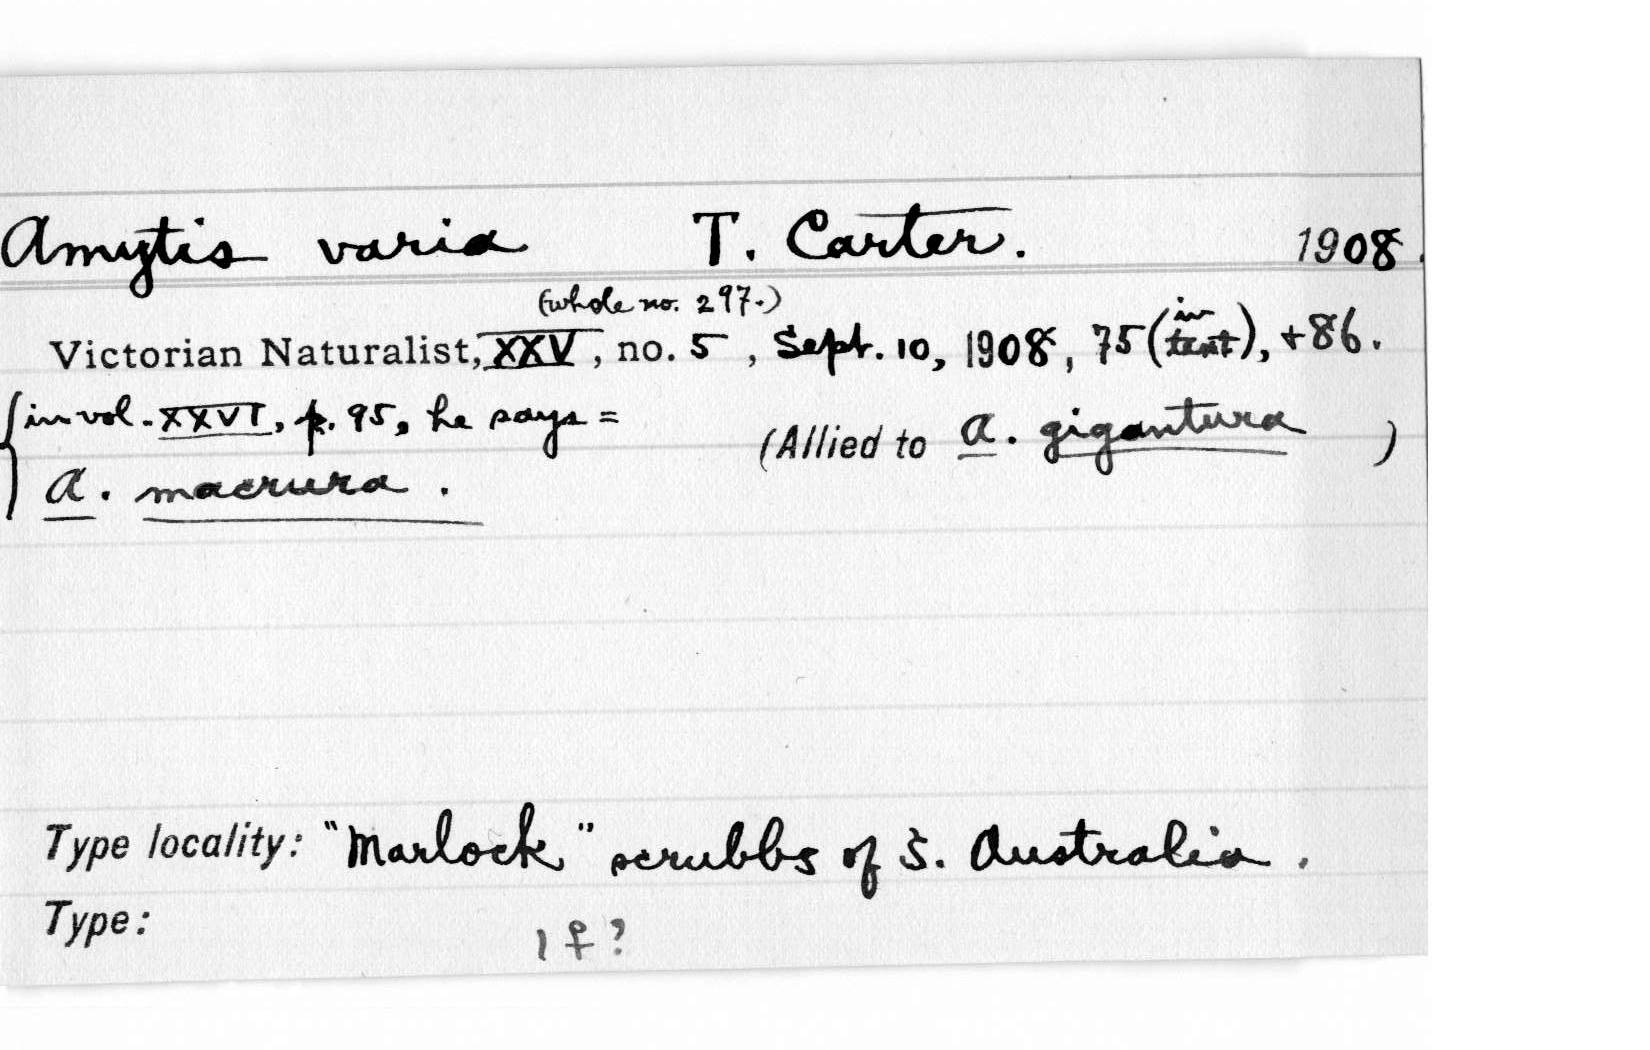 Amytis varia T. Carter. 1908.
(whole no. 297.)
Victorian Naturalist, XXV, no. 5, Sept. 10, 1908, 75 (in text), +86.
{in vol. XXVI, p. 95, he says =
(Allied to A. gigantura )
A. macrura.
Type locality: "Marlock" scrubbs of S. Australia.
Type: 1 ♀?